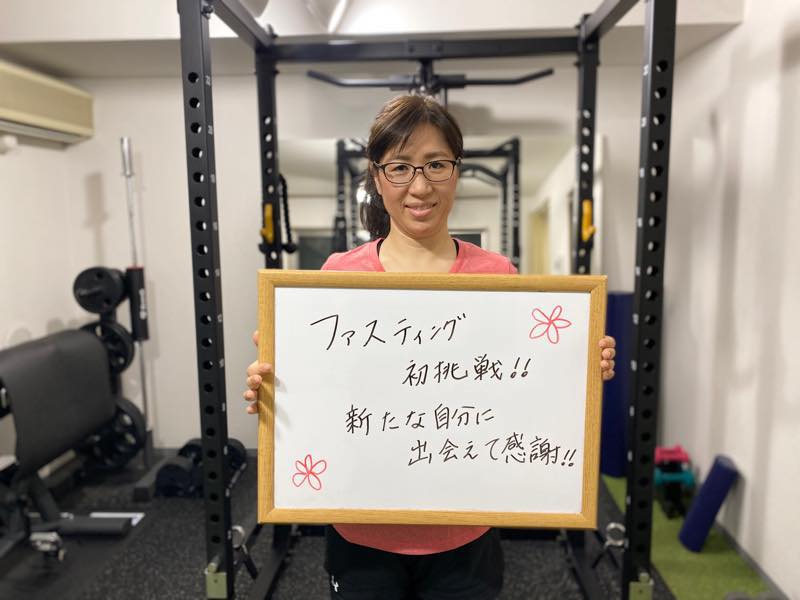 ファスティング
初挑戦!!
新たな自分に
出会えて感謝!!